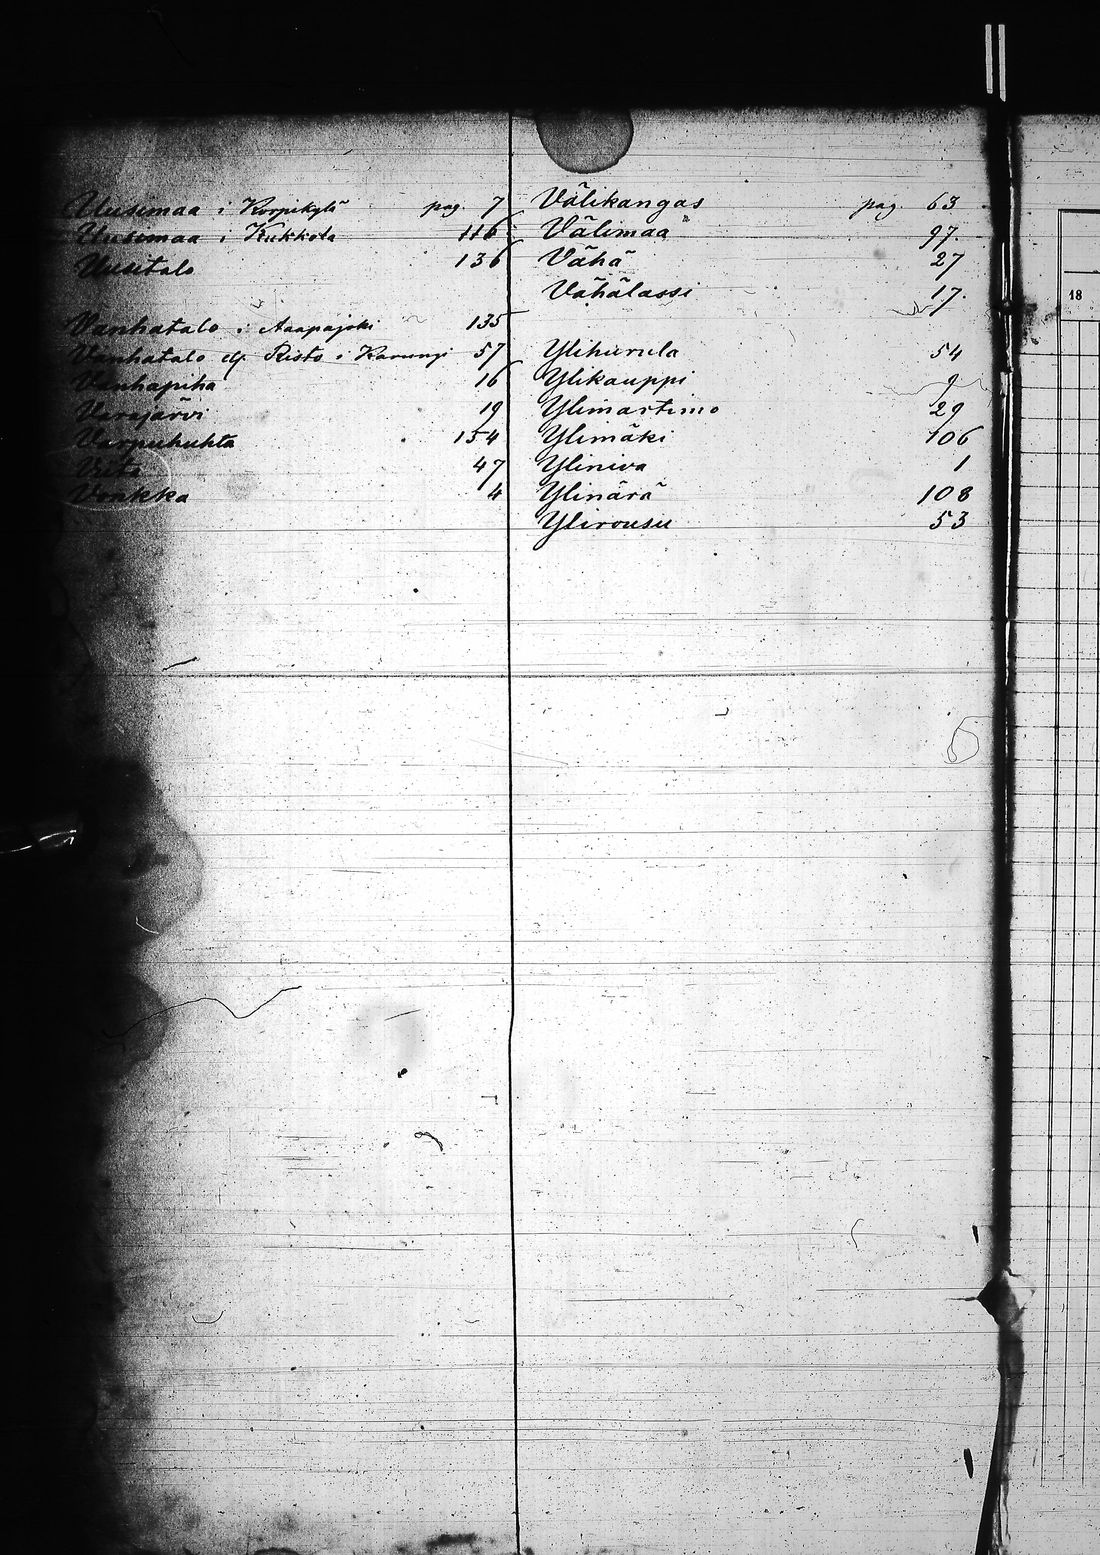 Uusimaa i Korpikylä pag. 7
Uusimaa i Kukkola 116
Uusitalo 136
Vanhatalo i Aaapajoki 135
Vanhatalo el. Risto i Karungi 57
Vanhapiha 16
Varajärvi 19
Varpuhuhta 154
47
Vonkka 4
Välikangas pag. 63
Välimaa 97.
Vähä 27
Vähälassi 17.
Ylihurula 54
Ylikauppi 9
Ylimartimo 29
Ylimäki 106
Yliniva 1
Ylinärä 108
Ylirousu 53
18